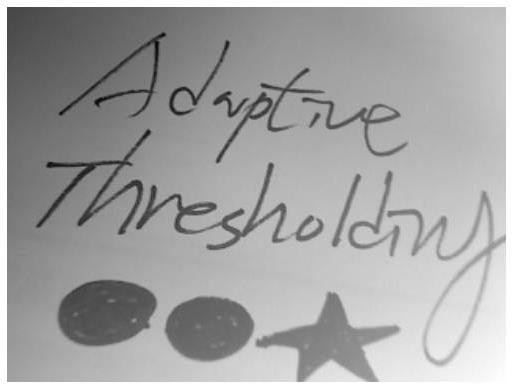 Adaptive
Thresholding